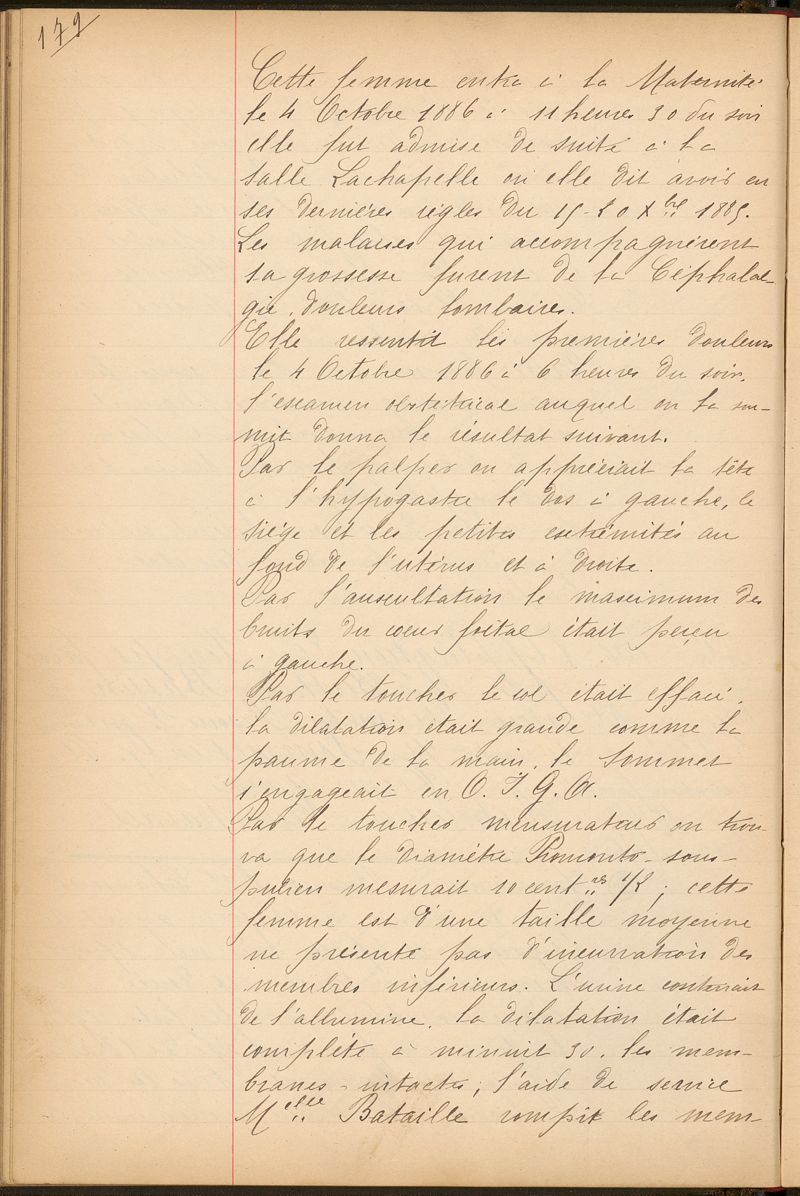 179
Cette femme entra à la Maternité
le 4 Octobre 1886 à 11 heures 30 du soir
elle fut admise de suite à la
salle Lachapelle où elle dit avoir eu
ses dernières règles du 15-20 Xbre 1885.
Les malaises qui accompagnèrent
sa grossesse furent de la Céphalal-
gie, douleurs lombaires.
Elle ressentit les premières douleurs
le 4 Octobre 1886 à 6 heures du soir.
l'examen obstétrical auquel on la sou-
mit donna le résultat suivant.
Par le palper on appréciait la tête
à l'hypogastre le dos à gauche, le
siège et les petites extrémités au
fond de l'utérus et à droite.
Par l'auscultation le maximum des
bruits du coeur foetal était perçu
à gauche.
Par le toucher le col était effacé,
la dilatation était grande comme la
paume de la main, le sommet
s'engageait en O. I. G. A.
Par le toucher mensurateur on trou-
va que le diamètre Promonto-sous-
pubien mesurait 10 centres 1/2 ; cette
femme est d'une taille moyenne
ne présente pas d'incurvation des
membres inférieurs. L'urine contenait
de l'albumine. la dilatation était
complète à minuit 30. les mem-
branes intactes ; l'aide de service
Melle Bataille rompit les mem-